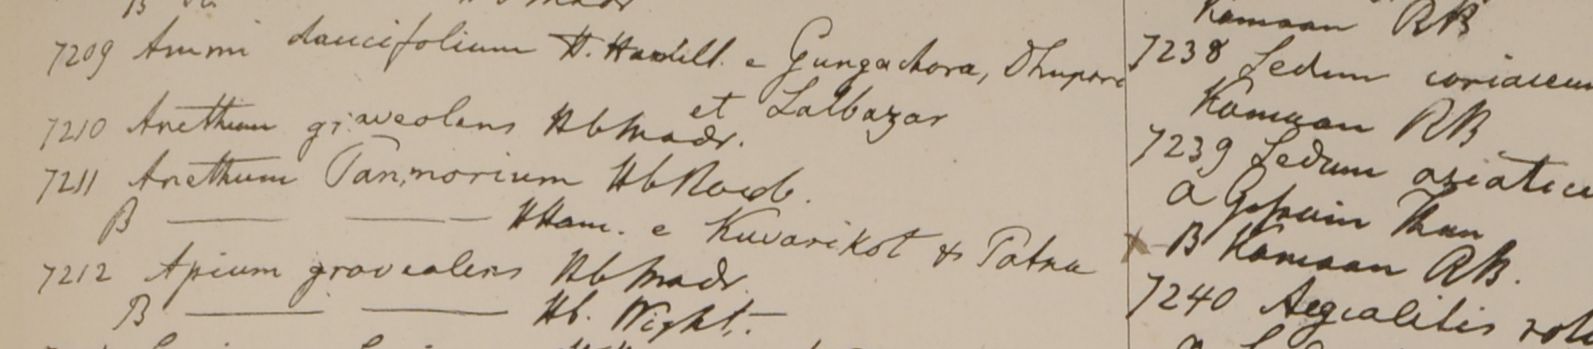 7209 Ammi daucifolium H. Hamill. e Gungachora, Dhupore
et Lalbazar
7210 Anethum graveolens HbMadr.
7211 Anethum Panmorium HbRoxb.
B — — HHam. e Kuvarikot & Patna
7212 Apium graveolens HbMadr.
B — — Hb. Wight.
Kamaon RB
7238 Sedum coriaceum
Kamaon RB
7239 Sedum asiaticu
a Gossain Than
B Kamaon RB.
7240 Aegialitis rotu